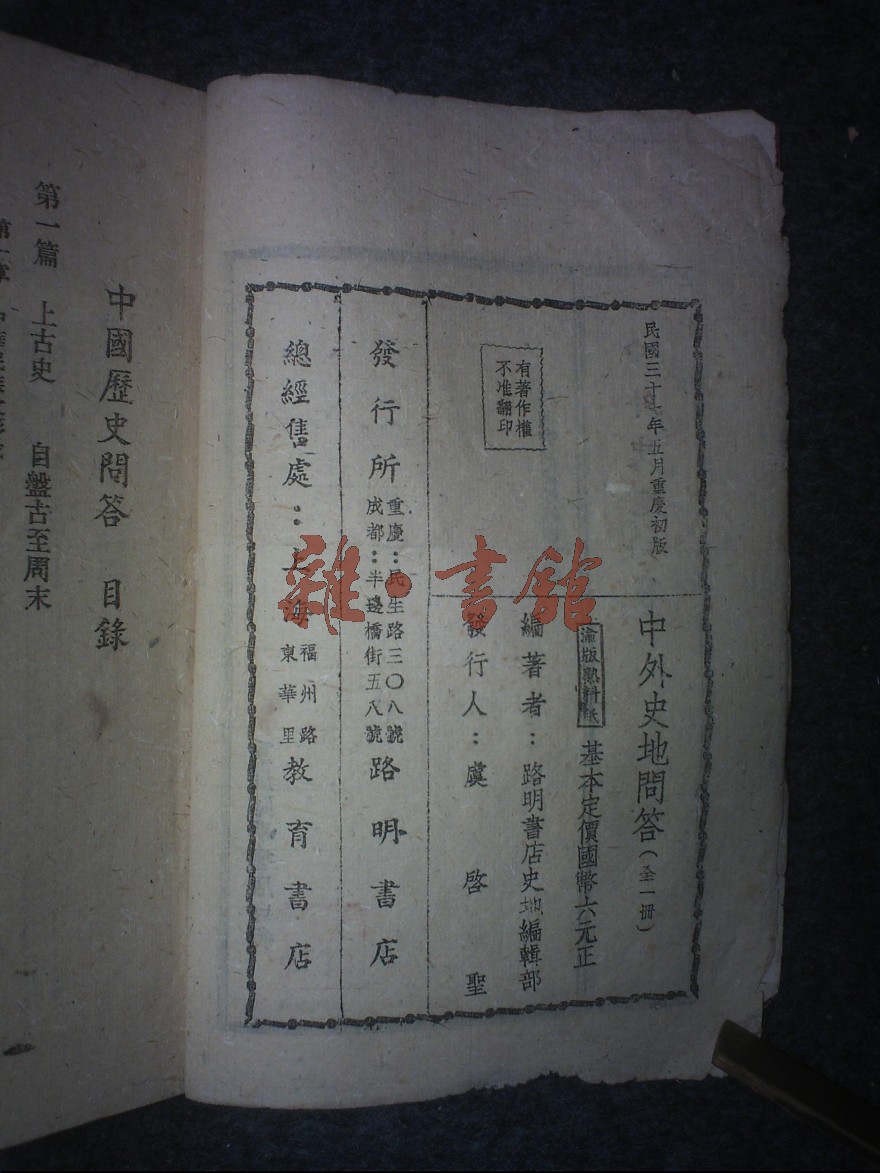 民國三十七年五月重慶初版
中外史地問答（全一冊）
有著作權
不准翻印
渝版熟料紙
基本定價國幣六元正
編著者：路明書店史地編輯部
發行人：虞啓聖
發行所 重慶：民生路三〇八號 成都：半邊橋街五八號 路明書店
總經售處：上海 福州路 東華里 教育書店
雜·書館
中國歷史問答 目錄
第一篇 上古史 自盤古至周末
第一章